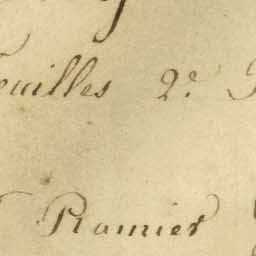 euilles 2e
Ramier